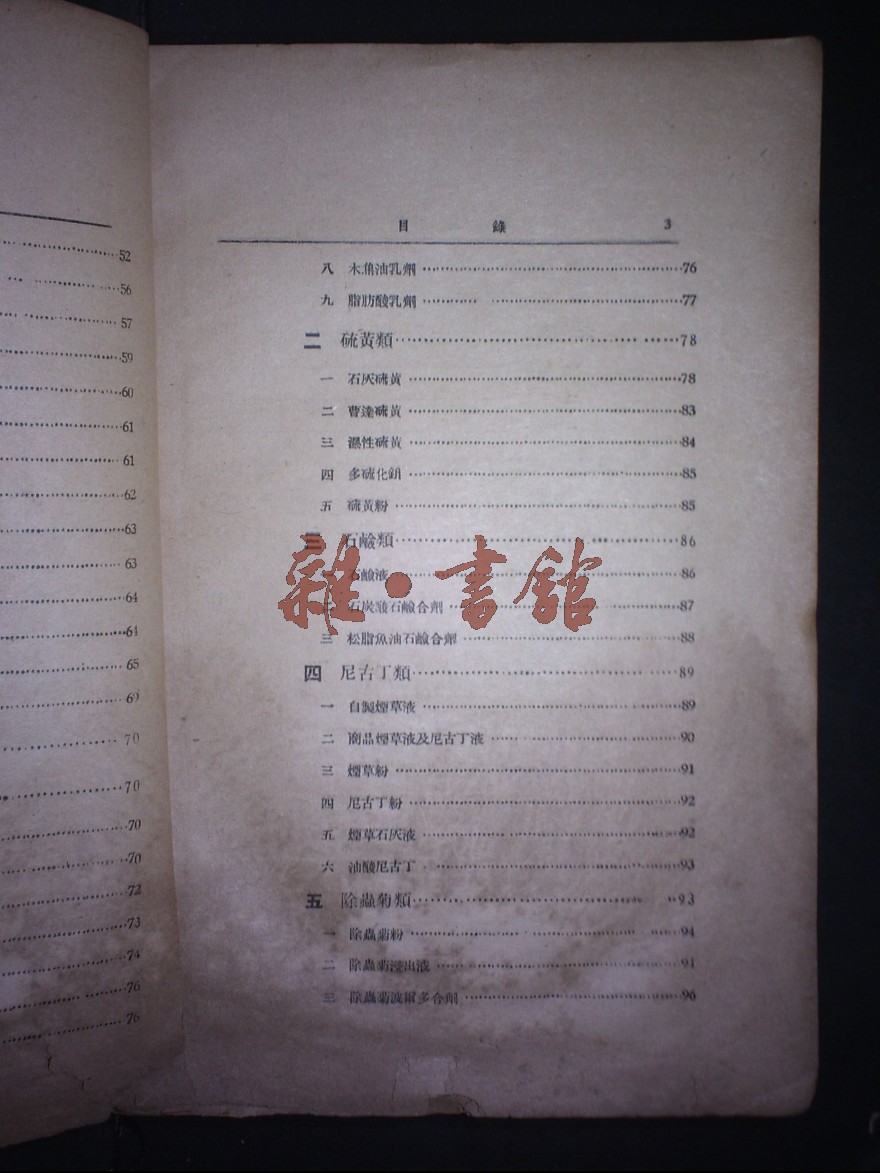 52
56
57
59
60
61
61
62
63
63
64
64
65
69
70
70
70
70
72
73
74
76
76
目 錄 3
八 木魚油乳劑 76
九 脂肪酸乳劑 77
二 硫黃類 78
一 石灰硫黃 78
二 曹達硫黃 83
三 濕性硫黃 84
四 多硫化鋇 85
五 硫黃粉 85
三 石鹼類 86
石鹼液 86
石炭酸石鹼合劑 87
三 松脂魚油石鹼合劑 88
雜·書館
四 尼古丁類 89
一 自製煙草液 89
二 商品煙草液及尼古丁液 90
三 煙草粉 91
四 尼古丁粉 92
五 煙草石灰液 92
六 油酸尼古丁 93
五 除蟲菊類 93
一 除蟲菊粉 94
二 除蟲菊浸出液 94
三 除蟲菊波爾多合劑 96